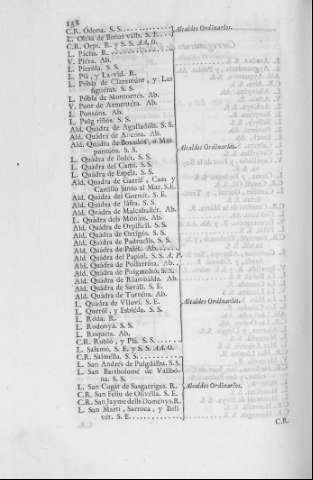 158
C.R. Odena. S. S.
L. Olesa de Bonas valls. S. E.
C.R. Orpi. R. y S. S. Ad. O.
L. Pachs. R.
V. Piera. Ab.
L. Pierola. S. S.
L. Plá, y La-vid. R.
L. Pobla de Claramunt, y Las
figueras. S. S.
L. Pobla de Montornés. Ab.
V. Pont de Armentéra. Ab.
L. Pontóns. Ab.
L. Puig S. S.
Ald. Quadra de Agulladólls. S. S.
Ald. Quadra de Ancosa. Ab.
Ald. Quadra de ó Mas
S. S.
L. Quadra de S. S.
L. Quadra del Camí. S. S.
L. Quadra de Espélt. S. S.
Ald. Quadra de Garráf, Casa y
Castillo junto al Mar. S.E.
Ald. Quadra del Gornér. S. E.
Ald. Quadra de S. S.
Ald. Quadra de Malcabalsér. Ab.
L. Quadra dels Ab.
Ald. Quadra de Orpinell. S. S.
Ald. Quadra de Ortigós. S. S.
Ald. Quadra de Padruells. S. S.
Ald. Quadra de Ab.
Ald. Quadra del Papiol. S. S. A. P.
Ald. Quadra de Ab.
Ald. Quadra de Puigmoltó. S. S.
Ald. Quadra de Ab.
Ald. Quadra de Saváll. S. E.
Ald. Quadra de Torréna. Ab.
L. Quadra de Viloví. S. E.
L. Queról, y S. S.
L. Roda. R.
L. Rodonyá. S. S.
L. Roquera. Ab.
C.R. Rubió, y Plá. S. S.
L. Salamó. S. E. y S. S. Ad. O.
C.R. Salmella. S. S.
L. San Andrés de S. S.
L. San Bartholomé de Vallbó-
na. S. S.
L. San Cugát de Sasgarrigas. R.
C.R. San Feliu de Olivélla. S. E.
C.R. San Jayme dells Doménys. R.
L. San Martí, Sarroca, y Bell-
vér. S. E.
Alcaldes Ordinarios.
Alcaldes Ordinarios.
Alcaldes Ordinarios.
Alcaldes Ordinarios.
C.R.